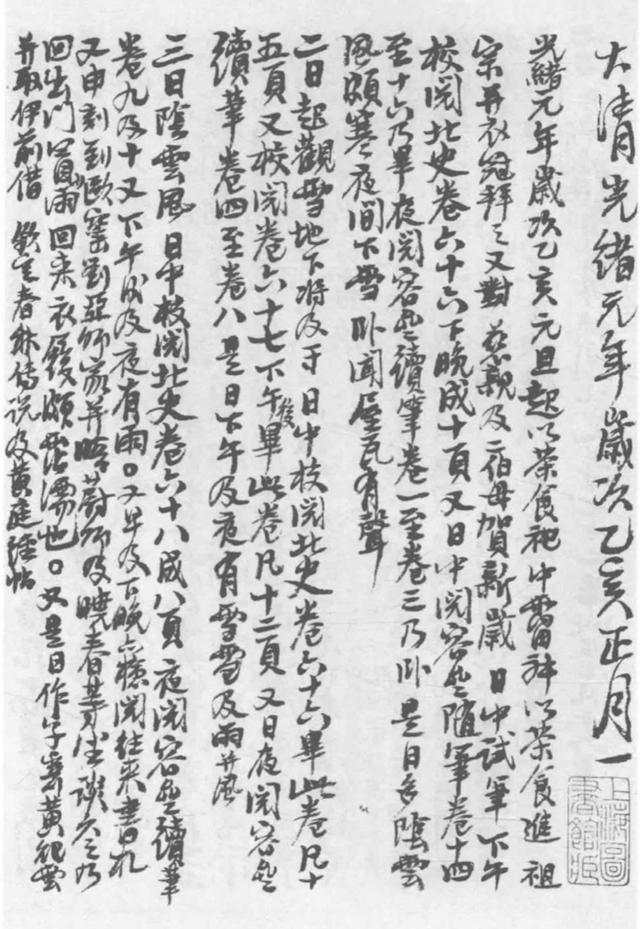 大清光緒元年歲次乙亥正月一
上海圖書館藏
光緒元年歲次乙亥元旦起以茶食祀中霤神以茶食進 祖
宗并衣冠拜之又對 慈親及二伯母賀新歲 日中試筆下午
校閱北史卷六十六下晚成十頁又日中閱容齋隨筆卷十四
至十六乃畢夜閱容齋續筆卷一至卷三乃卧是日多陰雲
風頗寒夜間下雪卧聞屋瓦有聲
二日起觀雪地下將及寸 日中校閱北史卷六十六畢此卷凡十
五頁又校閱卷六十七下午後畢此卷凡十二頁又日夜閱容齋
續筆卷四至卷八是日下午及夜有雪雪及雨并風
三日陰雲風 日中校閱北史卷六十八成八頁夜閱容齋續筆
卷九及十又下午及夜有雨○又早及下晚亦檢閱往來書札
又申刻到歐窰劉亞師家并晤蔚師及曉春等坐談久之乃
回出門冒雨回來衣履頗霑濡也○又是日作字寄黃
并取伊前借 欽定春秋傳說及黃庭經帖